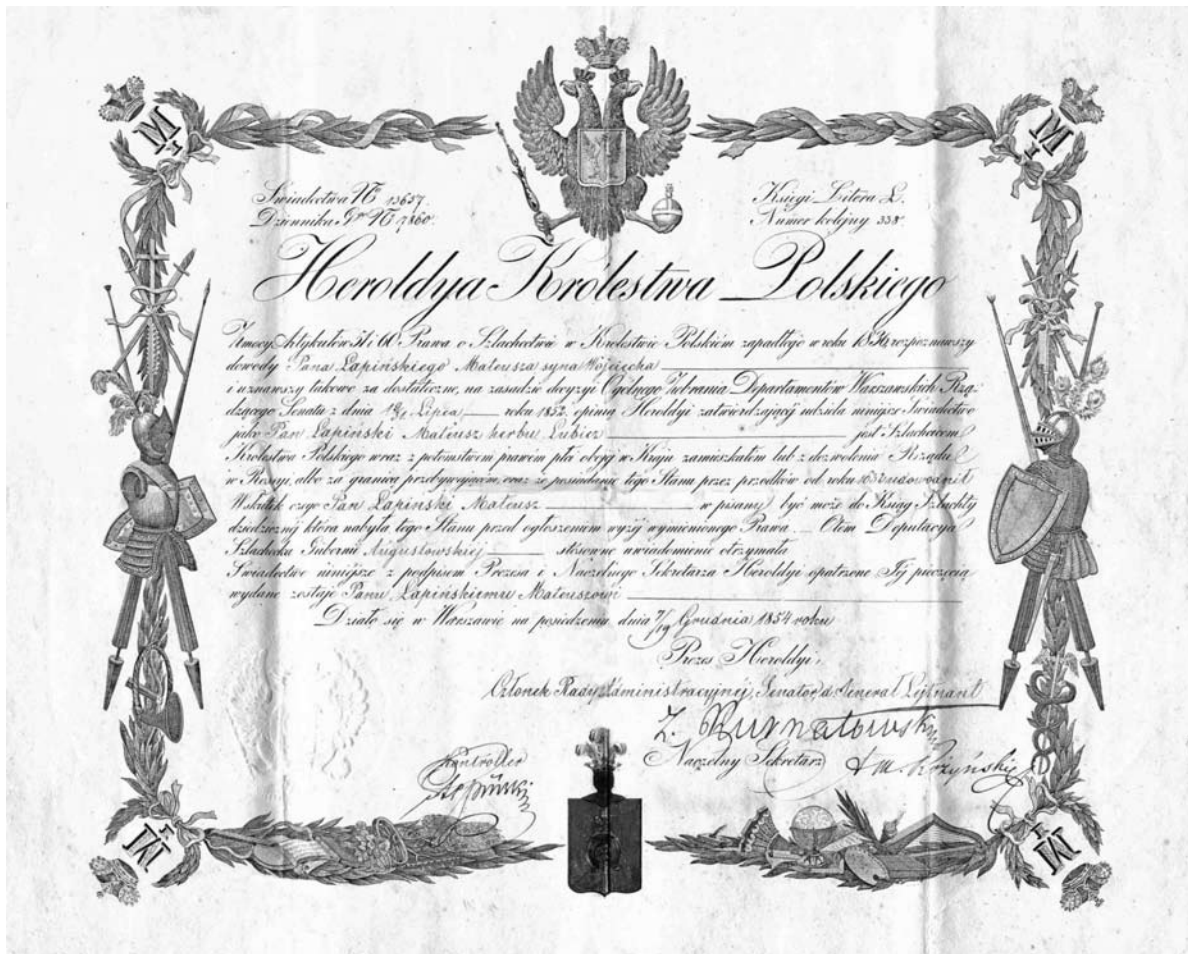 Świadectwa No 13657.
Dziennika Ggo No 7860.
Księgi Litera Ł.
Numer kolejny 338.
Heroldya Krolestwa Polskiego
Zmocy Artykułów 51 i 60 Prawa o Szlachectwie w Krolestwie Polskiém zapadłego w roku 1836, rozpoznawszy
dowody Pana Łapińskiego Mateusza syna Wojciecha
i uznawszy takowe za dostateczne, na zasadzie decyzyi Ogólnego Zebrania Departamentów Warszawskich Rzą-
dzącego Senatu z dnia Lipca roku 1852 opinią Heroldyi zatwierdzającéj udziela niniejsze Świadectwo
jako Pan Łapiński Mateusz herbu Lubicz jest Szlachcicem
Królestwa Polskiego wraz z potomstwem prawém płci obojej w Kraju zamieszkałem lub z dozwolenia Rządu
w Rossyi, albo za granicą przebywającém, oraz że posiadanie tego Stanu przez przodków od roku udowodnił
Wskutek czego Pan Łapiński Mateusz w pisany być może do Ksiąg Szlachty
dziedzicznej która nabyła tego Stanu przed ogłoszeniem wyżéj wymienionego Prawa. Otem Deputacya
Szlachecka Gubernii Augustowskiej stosowne uwiadomienie otrzymała
Świadectwo niniejsze z podpisem Prezesa i Naczelnego Sekretarza Heroldyi opatrzone Jéj pieczęcią
wydane zostaje Panu Łapińskiemu Mateuszowi
Działo się w Warszawie na posiedzeniu dnia 7/19 Grudnia 1854 roku
Prezes Heroldyi,
Członek Rady Administracyjnéj, Senator, Generał Lejtnant
Kurnatowski
Naczelny Sekretarz
Kontroller
M
M
M
M